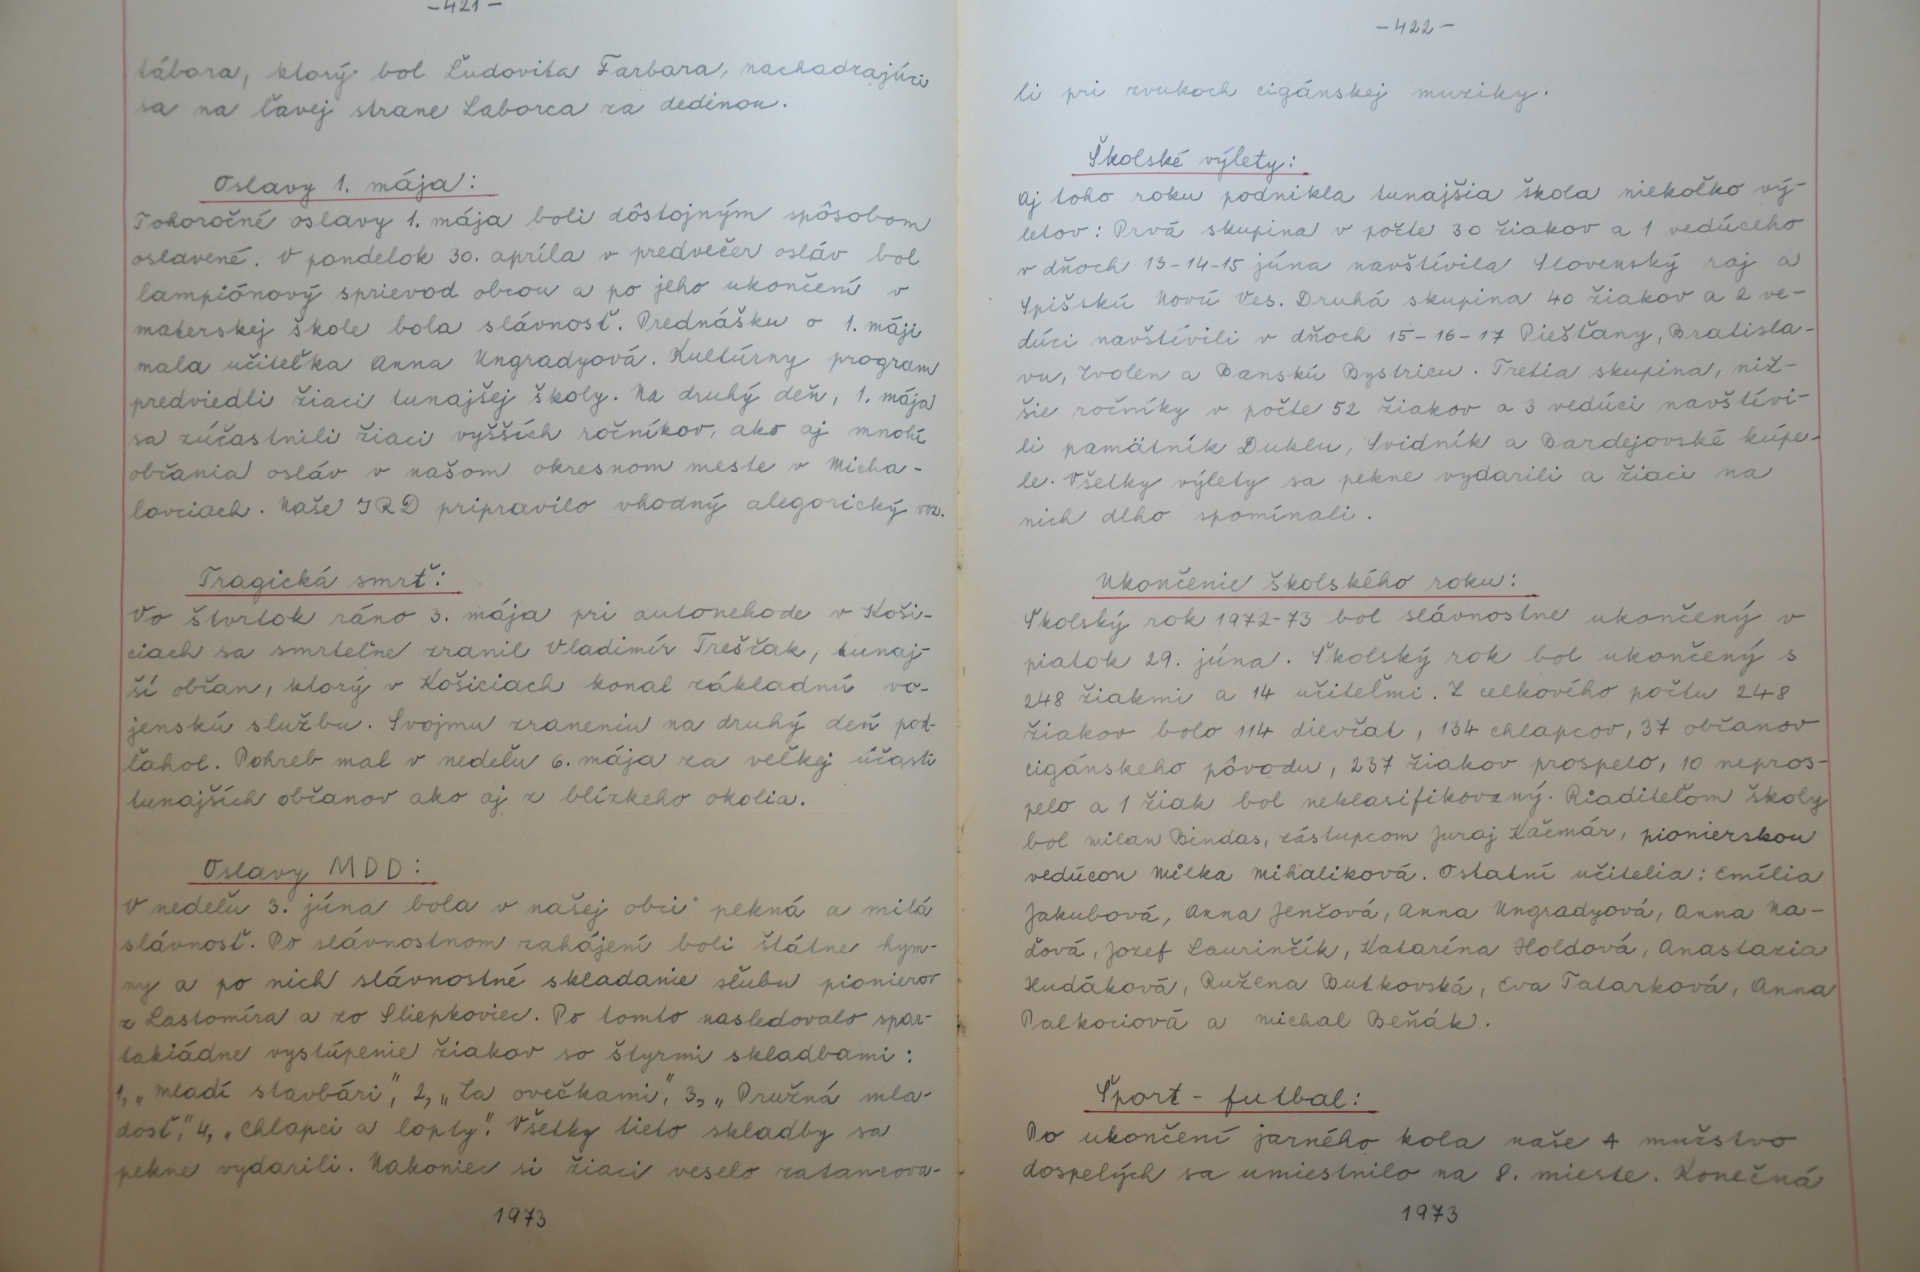 -421-
tábora, ktorý bol Ľudovíta Farbara, nachadzajúci
sa na ľavej strane Laborca za dedinou.
Oslavy 1. mája:
Tohoročné oslavy 1. mája boli dôstojným spôsobom
oslavené. V pondelok 30. apríla v predvečer osláv bol
lampiónový sprievod obcou a po jeho ukončení v
materskej škole bola slávnosť. Prednášku o 1. máji
mala učiteľka Anna Ungradyová. Kultúrny program
predviedli žiaci tunajšej školy. Na druhý deň, 1. mája
sa zúčastnili žiaci vyšších ročníkov, ako aj mnohí
občania osláv v našom okresnom meste v Micha-
lovciach. Naše JRD pripravilo vhodný alegorický voz.
Tragická smrť:
Vo štvrtok ráno 3. mája pri autonehode v Koši-
ciach sa smrteľne zranil Vladimír Treščak, tunaj-
ší občan, ktorý v Košiciach konal základnú vo-
jenskú službu. Svojmu zraneniu na druhý deň pod-
ľahol. Pohreb mal v nedeľu 6. mája za veľkej účasti
tunajších občanov ako aj z blízkeho okolia.
Oslavy MDD:
V nedeľu 3. júna bola v našej obci pekná a milá
slávnosť. Po slávnostnom zahájení boli štátne hym-
ny a po nich slávnostné skladanie sľubu pionierov
z Lastomíra a zo Sliepkoviec. Po tomto nasledovalo spar-
takiádne vystúpenie žiakov so štyrmi skladbami:
1, „Mladí stavbári", 2, „Za ovečkami", 3, „Pružná mla-
dosť", 4, „Chlapci a lopty". Všetky tieto skladby sa
pekne vydarili. Nakoniec si žiaci veselo zatancova-
1973
-422-
li pri zvukoch cigánskej muziky.
Školské výlety:
Aj toho roku podnikla tunajšia škola niekoľko vý-
letov: Prvá skupina v počte 30 žiakov a 1 vedúceho
v dňoch 13-14-15 júna navštívila Slovenský raj a
Spišskú Novú Ves. Druhá skupina 40 žiakov a 2 ve-
dúci navštívili v dňoch 15-16-17 Piešťany, Bratisla-
vu, Zvolen a Banskú Bystricu. Tretia skupina, niž-
šie ročníky v počte 52 žiakov a 3 vedúci navštívi-
li pamätník Duklu, Svidník a Bardejovské kúpe-
le. Všetky výlety sa pekne vydarili a žiaci na
nich dlho spomínali.
Ukončenie školského roku:
Školský rok 1972-73 bol slávnostne ukončený v
piatok 29. júna. Školský rok bol ukončený s
248 žiakmi a 14 učiteľmi. Z celkovího počtu 248
žiakov bolo 114 dievčat, 134 chlapcov, 37 občanov
cigánskeho pôvodu, 237 žiakov prospelo, 10 nepros-
pelo a 1 žiak bol neklasifikovaný. Riaditeľom školy
bol Milan Bindas, zástupcom Juraj Kačmár, pionierskou
vedúcou Milka Mihaliková. Ostatní učitelia: Emília
Jakubová, Anna Jenčová, Anna Ungradyová, Anna Na-
ďová, Jozef Laurinčík, Katarína Holdová, Anastazia
Hudáková, Ružena Butkovská, Eva Tatarková, Anna
Palkociová a Michal Beňák.
Šport - futbal:
Po ukončení jarného kola naše A mužstvo
dospelých sa umiestnilo na 8. mieste. Konečná
1973